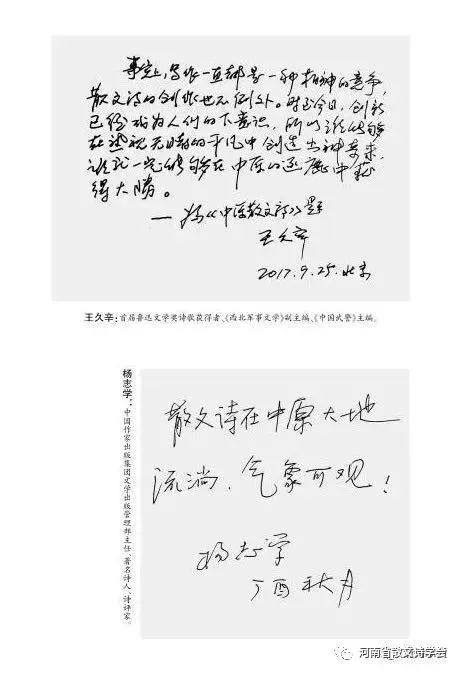 事实上,写作一直都是一种精神的竞争,
散文诗的创作也不例外。时至今日,创新
已经成为人们的下意识,所以谁能够
在熟视无睹的平凡中创造出神奇来,
谁就一定能够在中原的逐鹿中获
得大胜。
——为《中原散文诗》题
王久辛
2017.9.25.北京
王久辛:首届鲁迅文学奖诗歌获得者、《西北军事文学》副主编、《中国武警》主编。
杨志学:中国作家出版集团文学出版管理部主任、著名诗人、诗评家。
散文诗在中原大地
流淌,气象可观!
杨志学
丁酉秋月
河南省散文诗学会